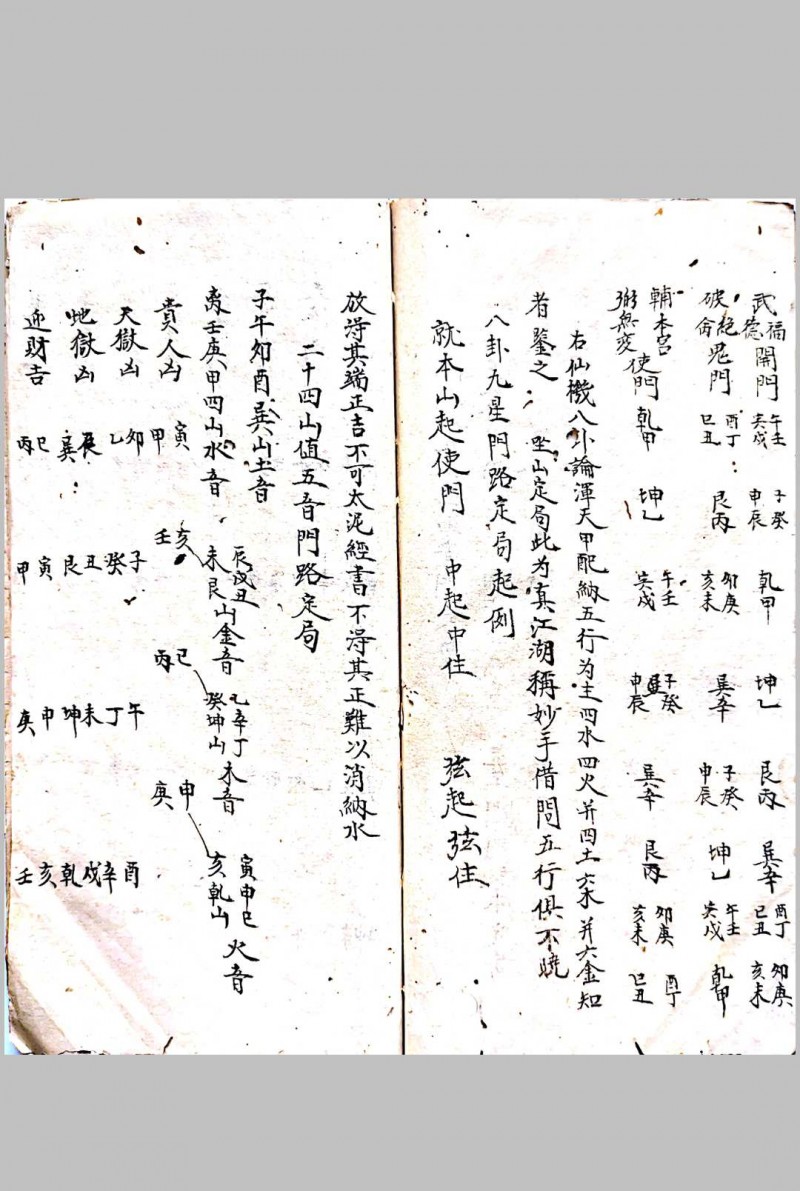 武福德開門 午壬寅戌 子癸申辰 乾甲 坤乙 艮丙 巽辛 酉丁巳丑 卯庚亥未
破絕命鬼門 酉丁巳丑 艮丙 卯庚亥未 巽辛 子癸申辰 坤乙 午壬寅戌 乾甲
輔弼本宮無变使門 乾甲 坤乙 午壬寅戌 子癸申辰 巽辛 艮丙 卯庚亥未 酉丁巳丑
右仙機八卦論渾天甲配納五行为主四水四火并四土六木并六金知
者鑒之 坐山定局此为真江湖稱妙手借問五行俱不曉
八卦九星門路定局起例
就本山起使門 中起中住 弦起弦住
放淂其端正吉不可太泥經書不淂其正難以消納水
二十四山值五音門路定局
子午卯酉巽山土音
离壬庚甲四山水音 辰戌丑未艮山金音 乙辛丁癸坤山木音 寅申巳亥乾山火音
貴人凶 寅甲 亥壬 巳丙 申庚
天獄凶 卯乙 子癸 午丁 酉辛
地獄凶 辰巽 丑艮 未坤 戌乾
迎財吉 巳丙 寅甲 申庚 亥壬